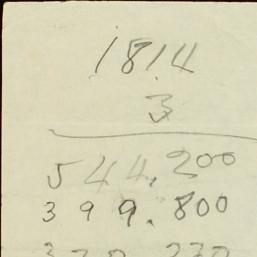 1814
3
544,200
399.800